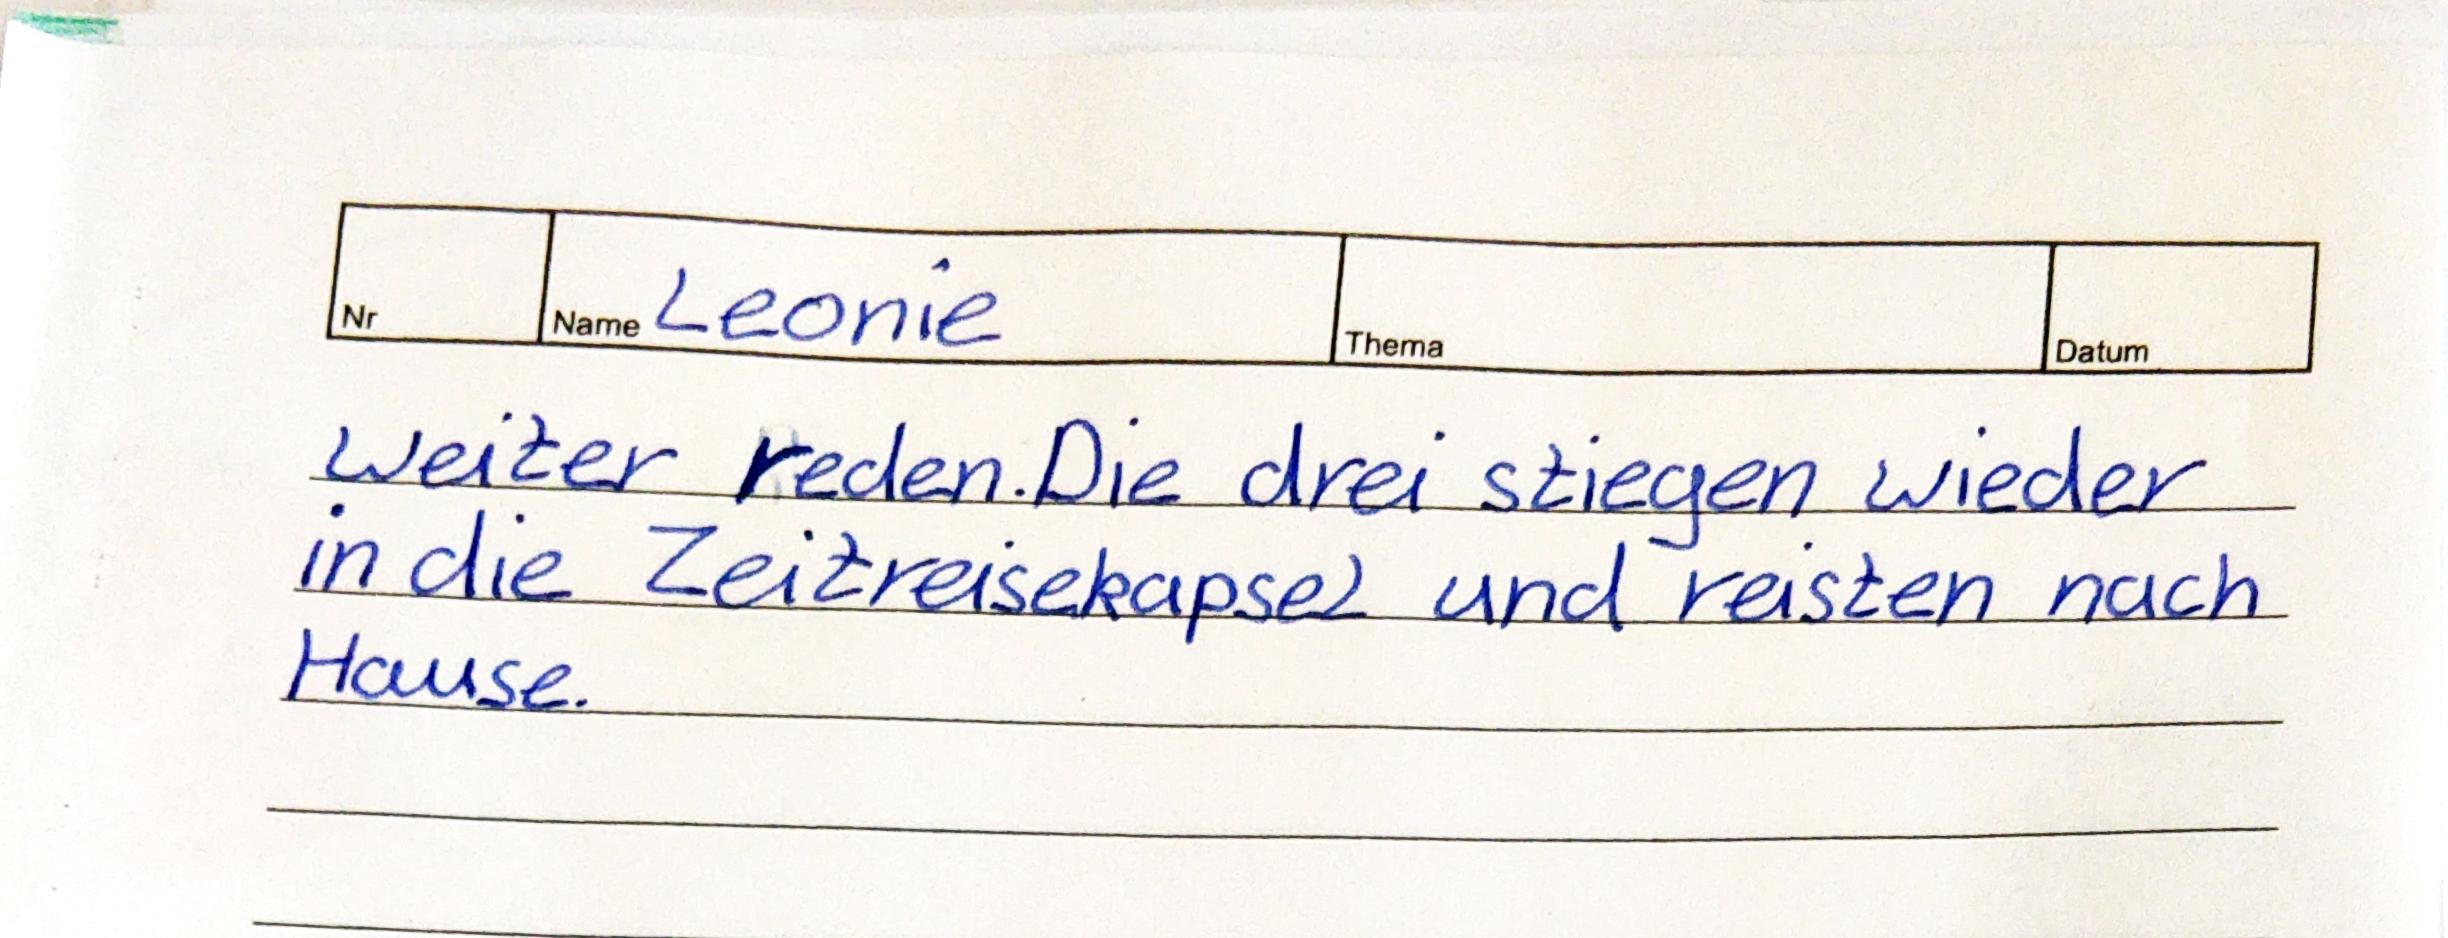 Nr Name Leonie Thema Datum
weiter reden. Die drei stiegen wieder
in die Zeitreisekapsel und reisten nach
Hause.